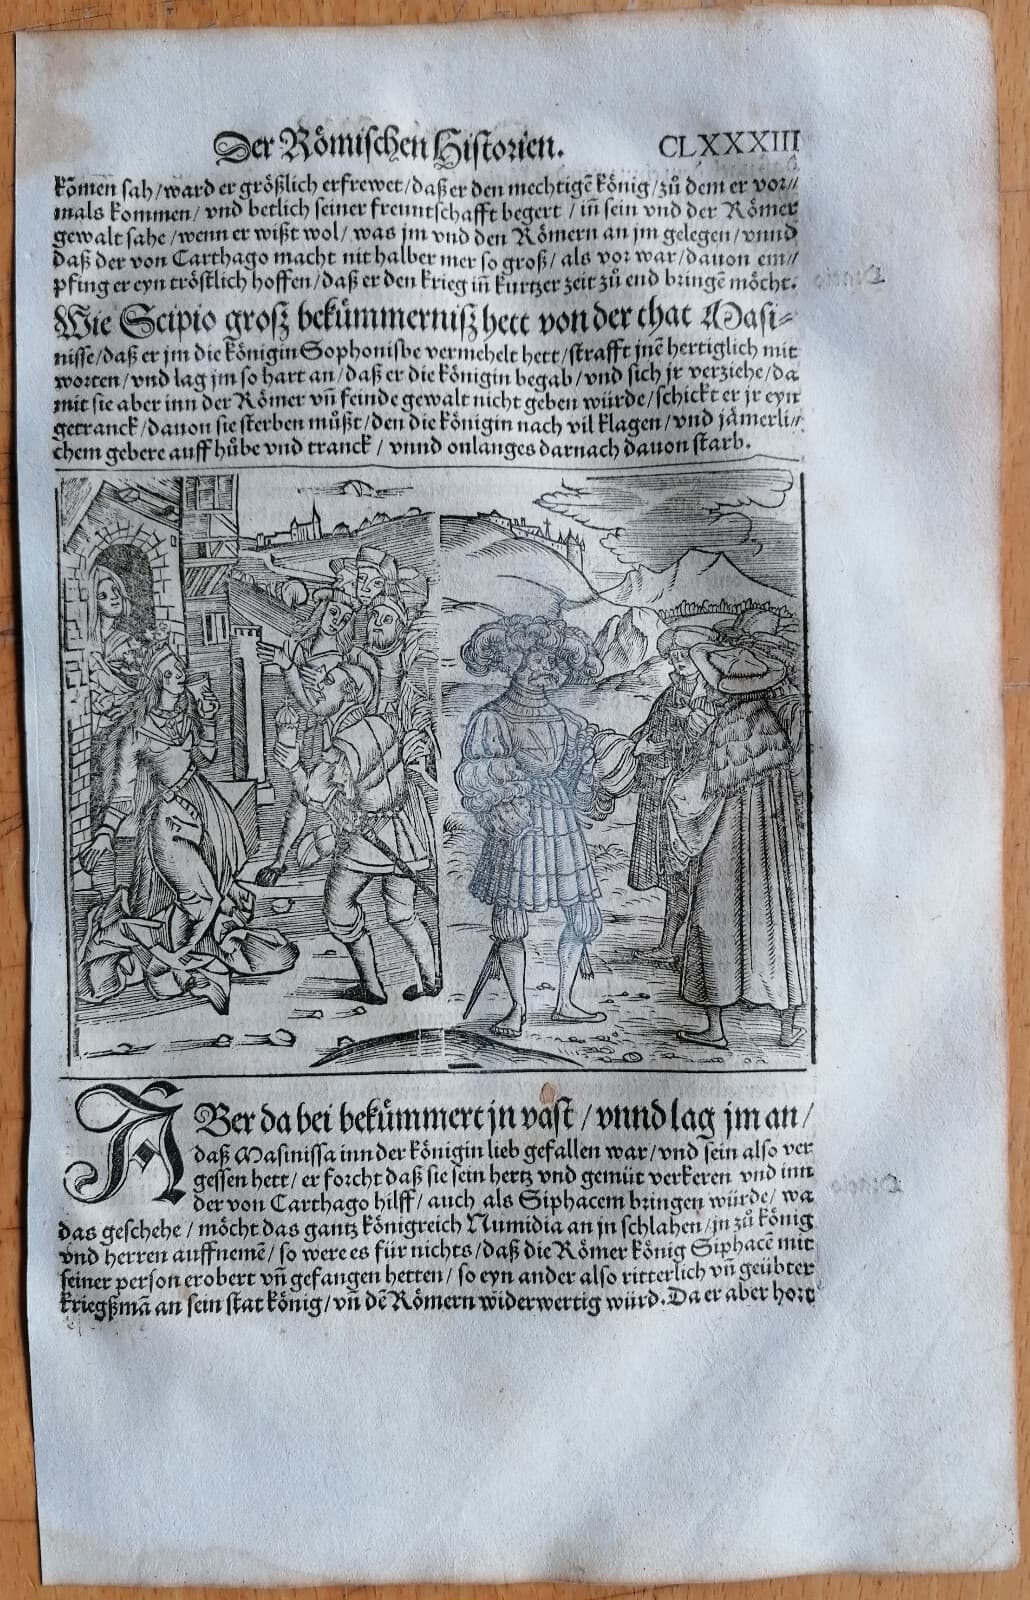 Der Römischen Historien. CLXXXIII
kom̃en sah/ward er größlich erfrewet/daß er den mechtigẽ könig/zů dem er vor⸗
mals kommen/ vnd betlich seiner freuntschafft begert / iñ sein vnd der Römer
gewalt sahe/wenn er wißt wol/ was jm vnd den Römern an jm gelegen/vnnd
daß der von Carthago macht nit halber mer so groß/ als vor war/dauon em⸗
pfing er eyn tröstlich hoffen/daß er den krieg iñ kurtzer zeit zů end bringẽ möcht.
Wie Scipio groß bekümmerniß hett von der that Masi⸗
nisse/daß er jm die königin Sophonisbe vermehelt hett/strafft jnẽ hertiglich mit
worten/vnd lag jm so hart an/daß er die königin begab/vnd sich jr verziehe/da
mit sie aber inn der Römer vñ feinde gewalt nicht geben würde/schickt er jr eyn
getranck/dauon sie sterben můßt/den die königin nach vil klagen/vnd jämerli⸗
chem gebere auff hůbe vnd tranck / vnnd onlanges darnach dauon starb.
ABer da bei bekümmert jn vast / vnnd lag jm an/
daß Masinissa inn der königin lieb gefallen war/vnd sein also ver
gessen hett/ er forcht daß sie sein hertz vnd gemüt verkeren vnd inn
der von Carthago hilff/ auch als Siphacem bringen würde/ wa
das geschehe/ möcht das gantz königreich Numidia an jn schlahen/jn zů könig
vnd herren auffnemẽ/ so were es für nichts/daß die Römer könig Siphacẽ mit
seiner person erobert vñ gefangen hetten/ so eyn ander also ritterlich vñ geübter
kriegßmã an sein stat könig/vñ dẽ Römern widerwertig würd. Da er aber hort